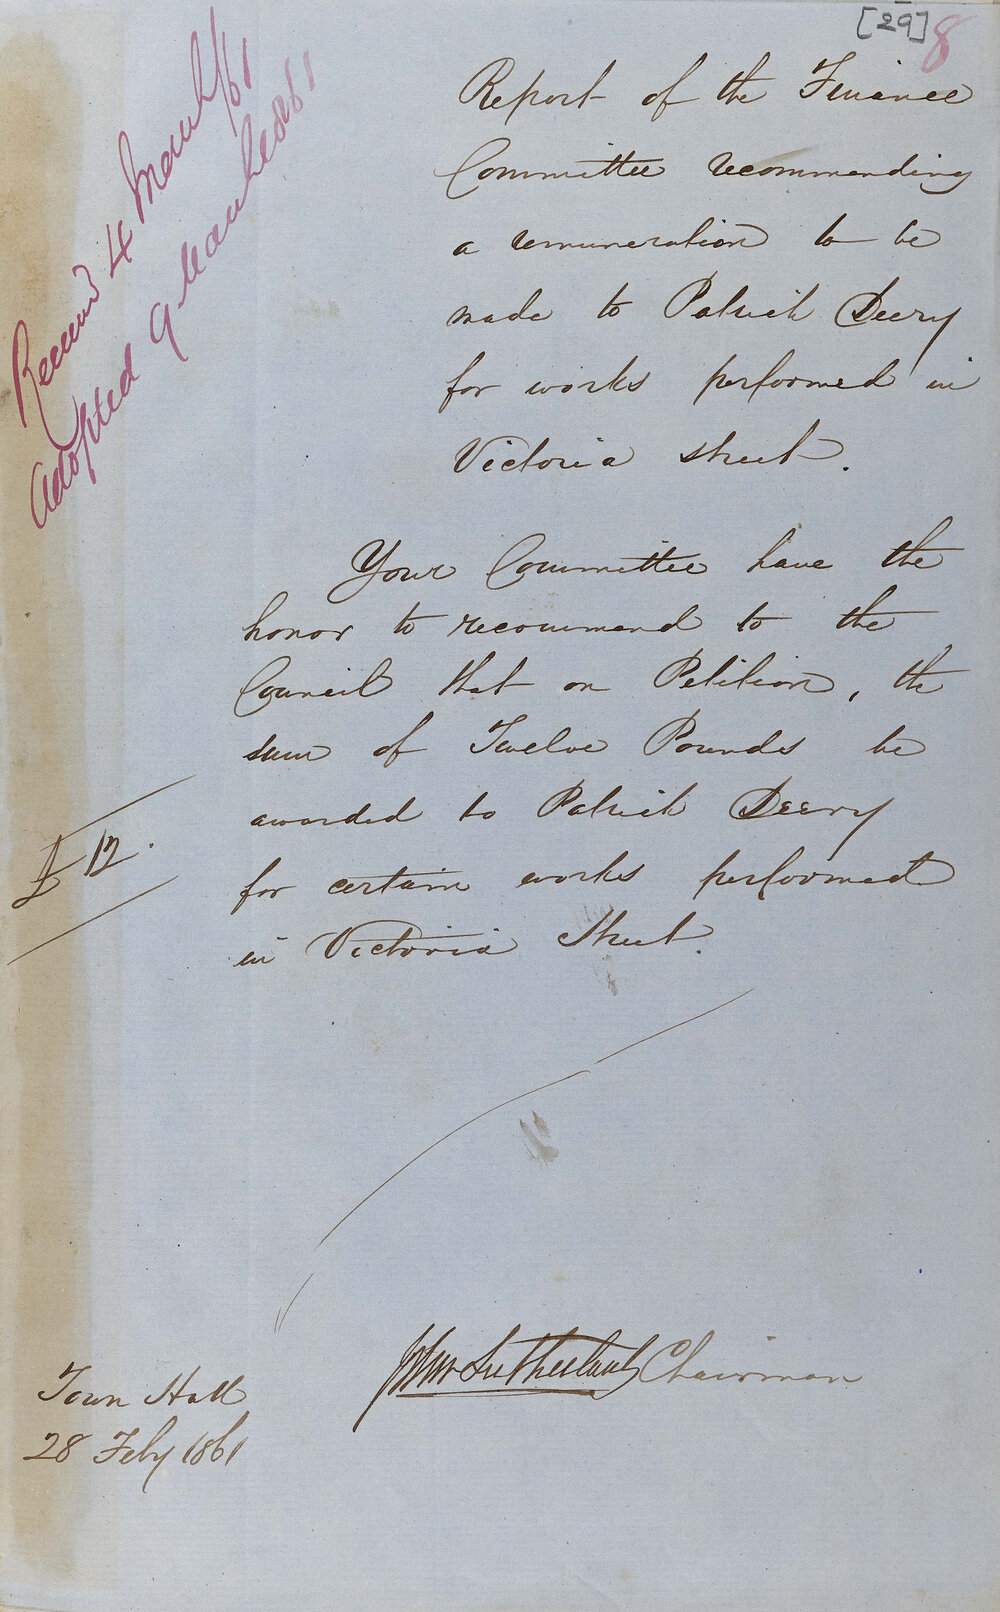 [29] 8
Received 4 March /61
Adopted 9 March 1861
Report of the Finance
Committee recommending
a remuneration to be
made to Patrick Deery
for works performed in
Victoria street.
Your Committee have the
honor to recommend to the
Council that on Petition, the
sum of Twelve Pounds be
awarded to Patrick Deery
£12.
for certain works performed
in Victoria Street.
John Sutherland Chairman
Town Hall
28 Feby 1861